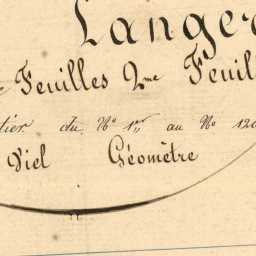 Langer
Feuilles 2me Feuil
tier du No 1er au No 120
Viel Géomètre